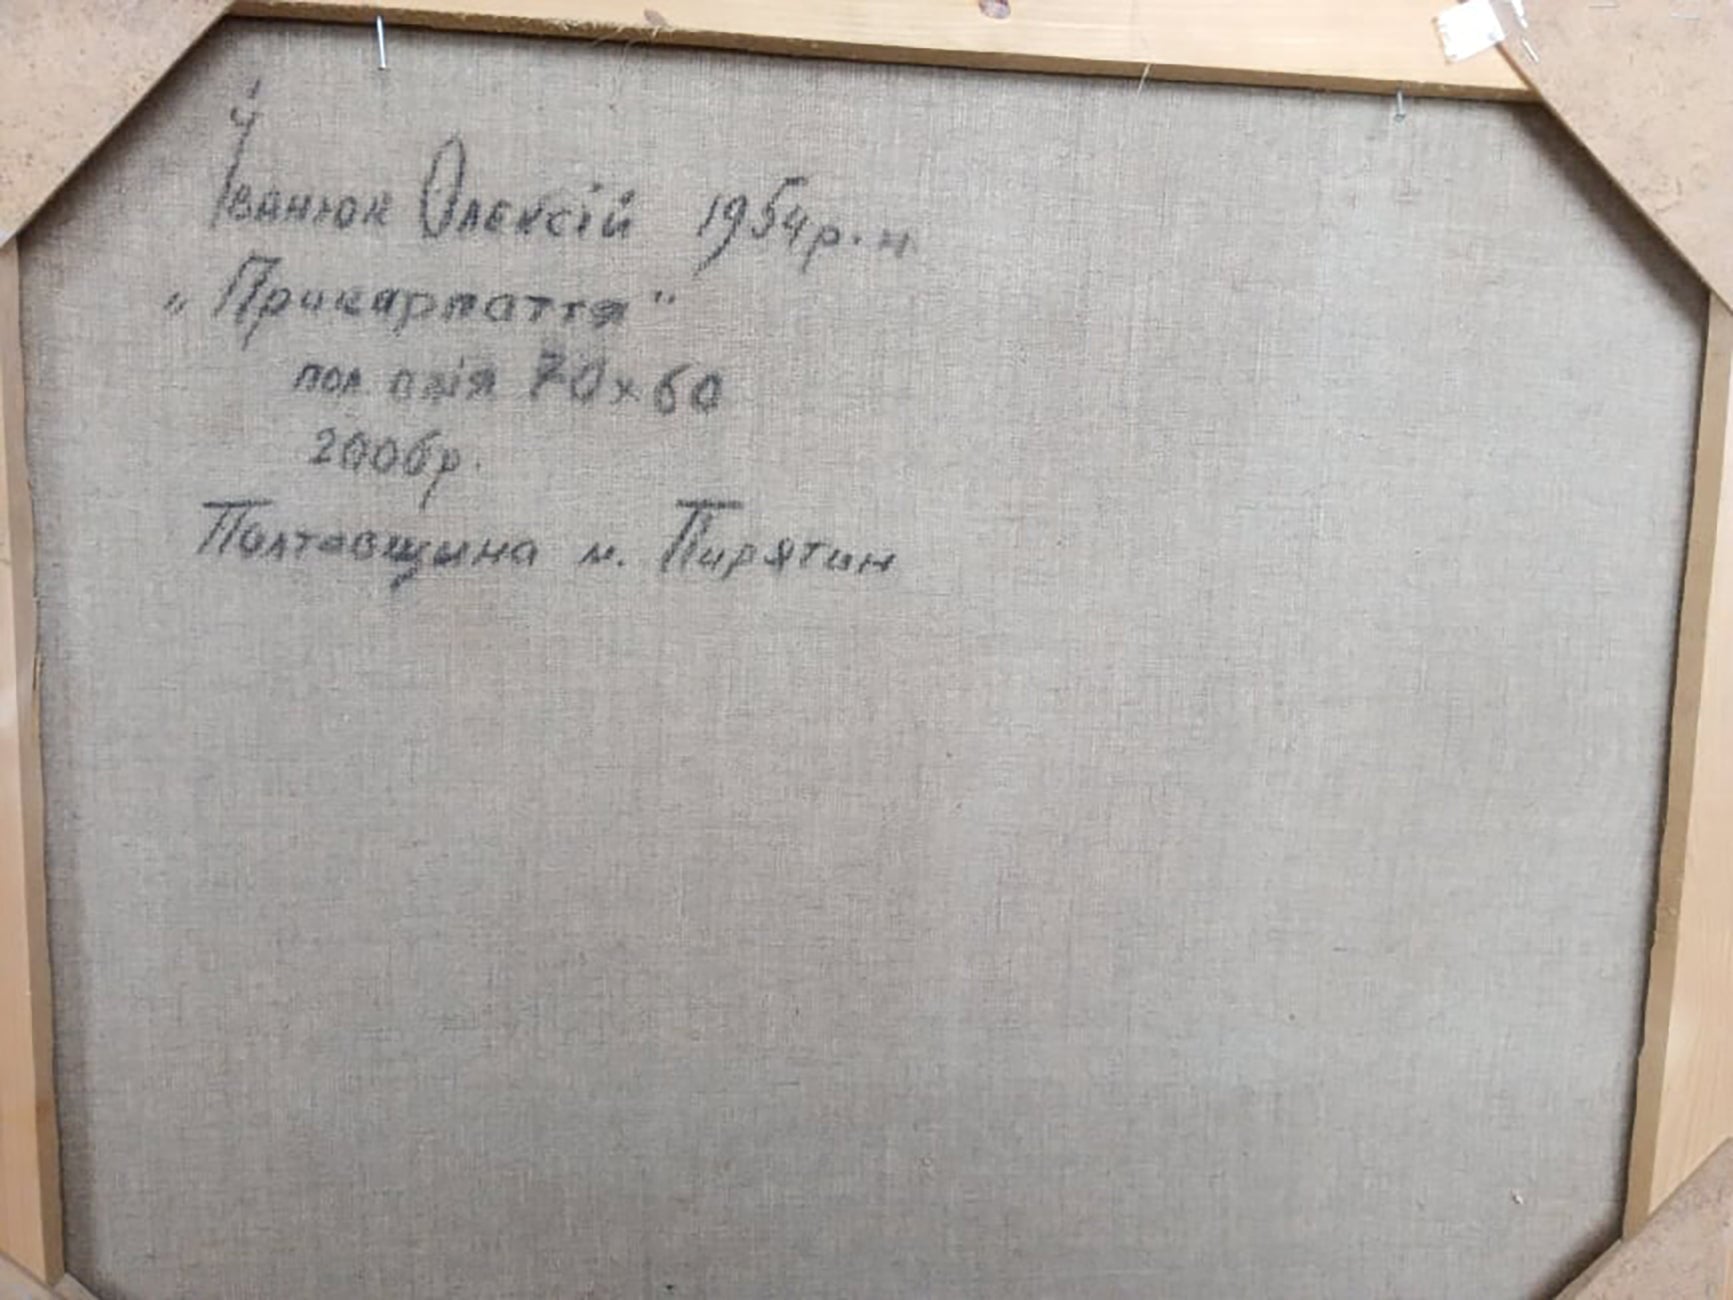 Іванюк Олексій 1954 р. н.
„Прикарпаття"
пол олія 70х60
2006р.
Полтавщина м. Пирятин